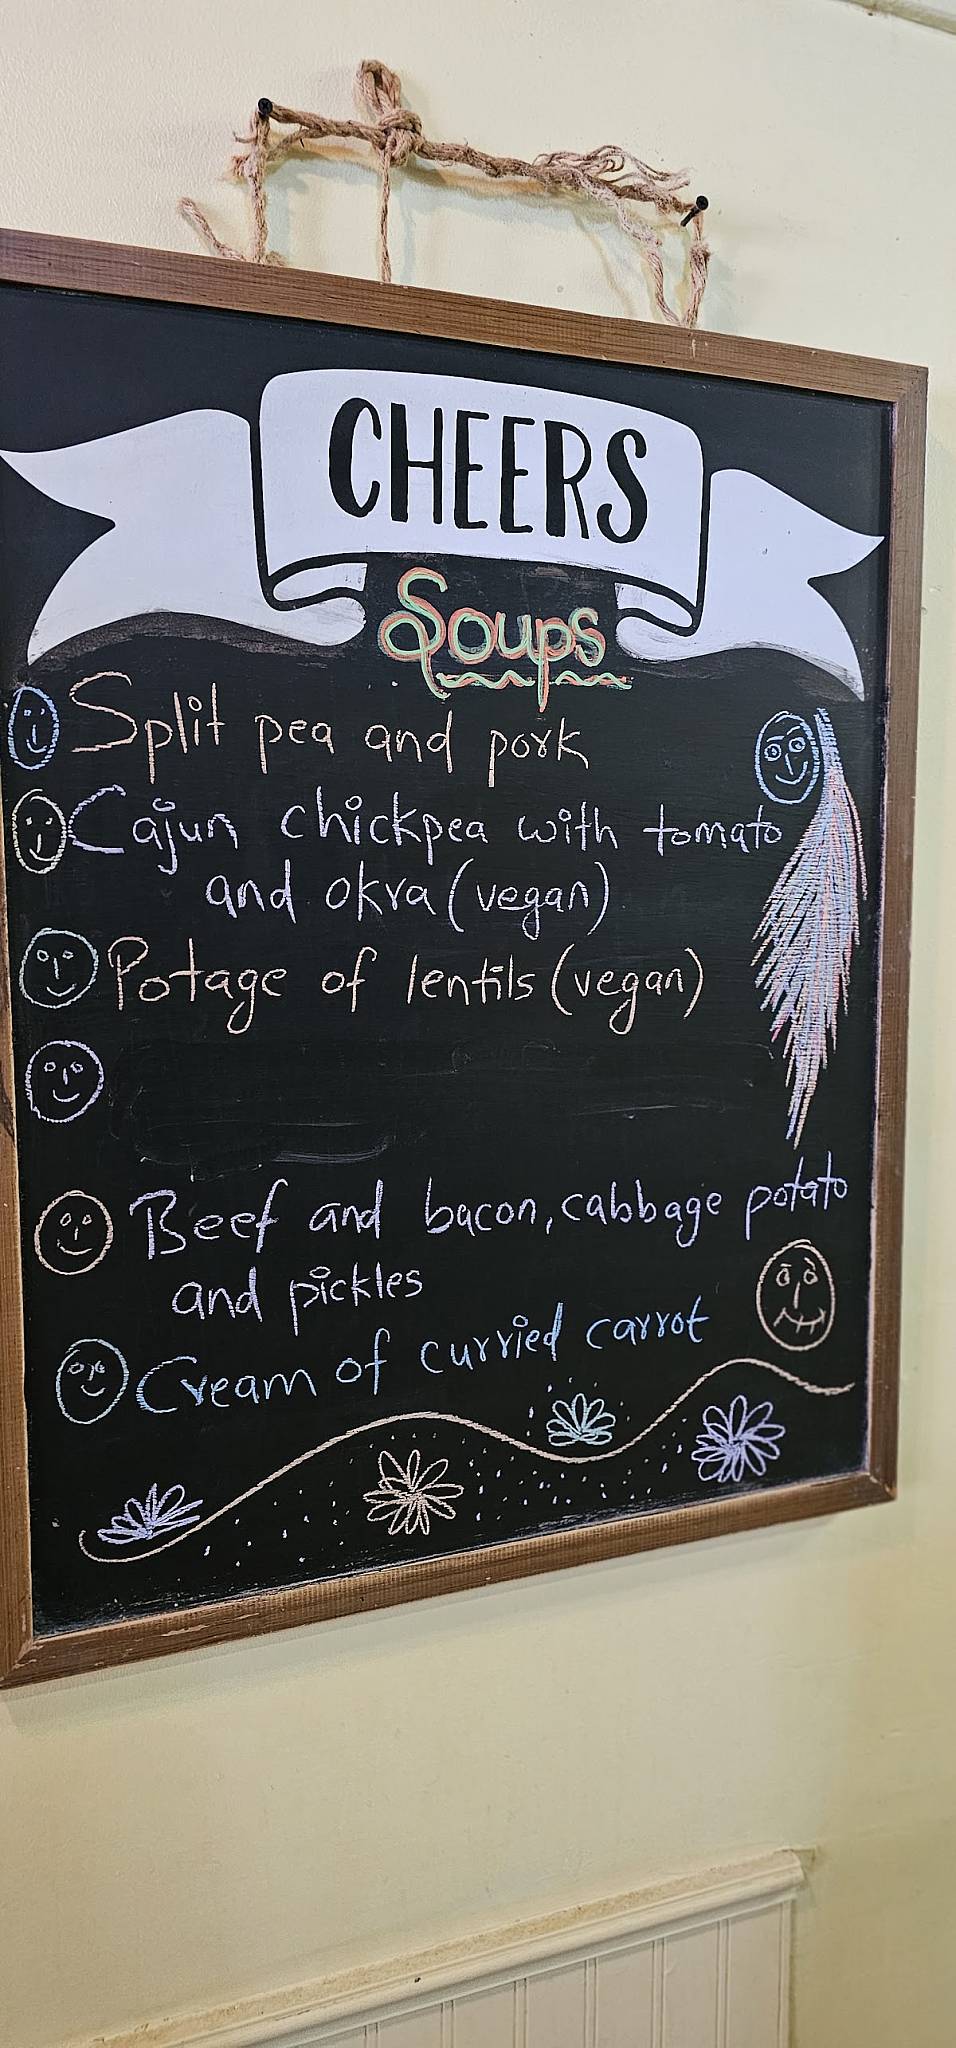 CHEERS
Soups
Split pea and pork
Cajun chickpea with tomato
and okra (vegan)
Potage of lentils (vegan)
Beef and bacon, cabbage potato
and pickles
Cream of curried carrot